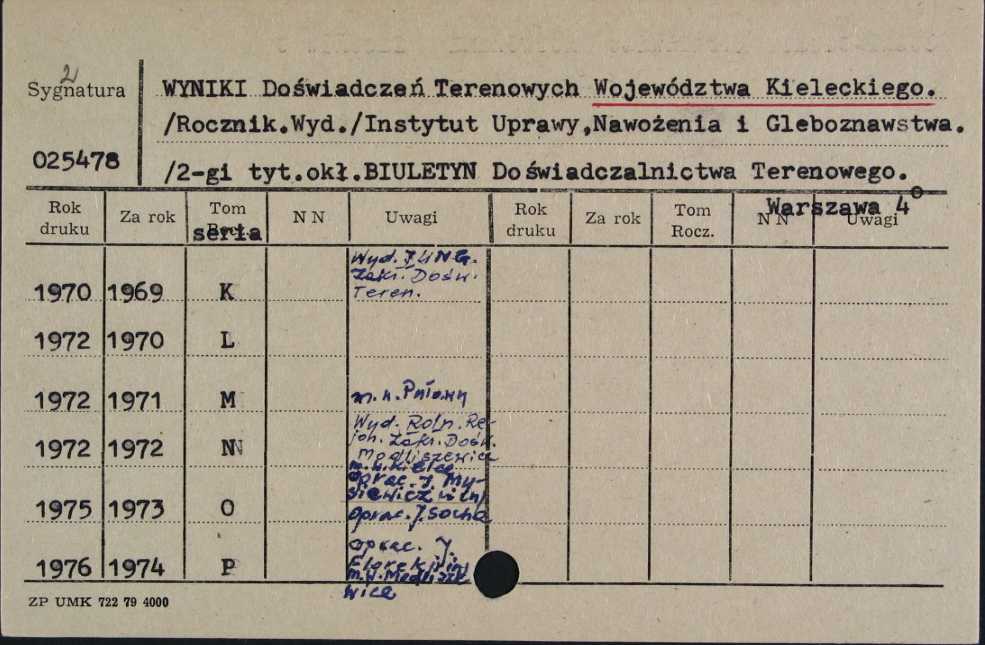 2
Sygnatura
025478
WYNIKI Doświadczeń Terenowych Województwa Kieleckiego.
/Rocznik.Wyd./Instytut Uprawy,Nawożenia i Gleboznawstwa.
/2-gi tyt.okł.BIULETYN Doświadczalnictwa Terenowego.
Warszawa 4°
Rok druku Za rok Tom Rocz. N N Uwagi Rok druku Za rok Tom Rocz. N N Uwagi
seria
1970 1969 K Wyd. IUNG.
Zakł. Dośw.
Teren.
1972 1970 L
1972 1971 M m. w. Puławy
1972 1972 N Wyd. Roln. Re-
jon. Zakł. Dośw.
Modliszewice
m. w. Kielce
oprac. J. My-
siewicz i in/
1975 1973 O oprac. J. Socha
1976 1974 P oprac. J.
Florek i in/
m. w. Modlisze
wice
ZP UMK 722 79 4000